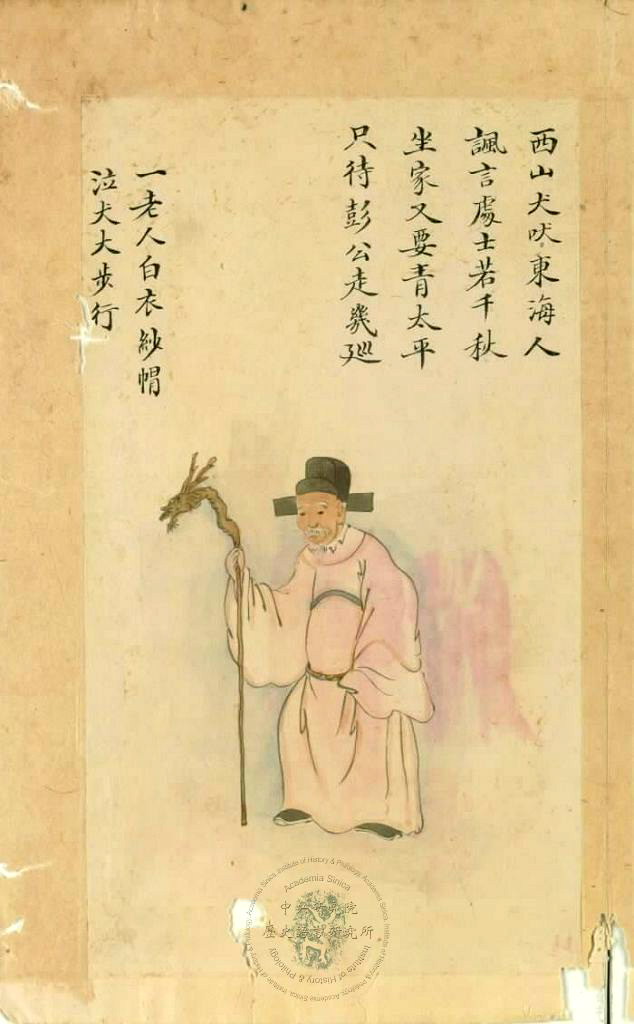 西山犬吠東海人
諷言處士若千秋
坐家又要青太平
只待彭公走幾廵
一老人白衣紗帽
泣犬大步行
Academia Sinica
中央研究院
歷史語言研究所
Institute of History & Philology